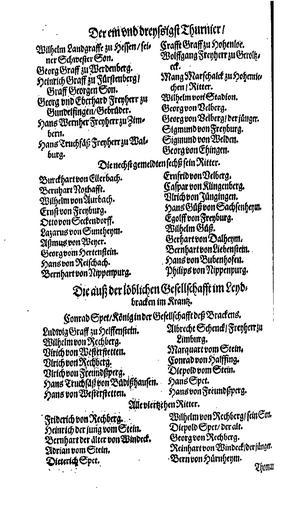 Der ein vnd dreyssigst Thurnier/
Wilhelm Landgraffe zu Hessen/ sei-
ner Schwester Son.
Georg Graff zu Werdenberg.
Heinrich Graff zu Fürstenberg/
Graff Georgen Son.
Georg vnd Eberhard Freyherr zu
Gundelfingen/ Gebrüder.
Hans Wernher Freyherr zu Zim-
bern.
Hans Truchsäß Freyherr zu Wal-
burg.
Crafft Graff zu Hohenloe.
Wolffgang Freyherr zu Geroltz-
eck.
Mang Marschalck zu Hohenrie-
chen/ Ritter.
Wilhelm von Stadion.
Georg von Velberg.
Georg von Velberg/ der jünger.
Sigmund von Freyburg.
Sigmund von Welden.
Georg von Ehingen.
Die nechstgemeldten sechß sein Ritter.
Burckhart von Ellerbach.
Bernhart Nothafft.
Wilhelm von Aurbach.
Ernst von Freyburg.
Otto von Seckendorff.
Lazarus von Suntheym.
Asimus von Weyer.
Georg von Hertenstein.
Hans von Reischach.
Bernhart von Nippenpurg.
Ernfrid von Velberg.
Caspar von Klingenberg.
Vlrich von Jüngingen.
Hans Güß von Sachsenheym.
Egolff von Freyburg.
Wilhelm Güß.
Gerhart von Dalheym.
Bernhart von Liebenstein.
Hans von Bubenhofen.
Philips von Nippenpurg.
Die auß der löblichen Gesellschafft im Leyd-
bracken im Krantz.
Conrad Spet/ König in der Gesellschafft deß Brackens.
Ludwig Graff zu Helffenstein.
Wilhelm von Rechberg.
Vlrich von Westerstetten.
Vlrich von Rechberg.
Vlrich von Freundßperg.
Hans Truchsäß von Bädißhausen.
Hans von Westerstetten.
Albrecht Schenck/ Freyherr zu
Limburg.
Marquart vom Stein.
Conrad von Halffing.
Diepold vom Stein.
Hans Spet.
Hans von Freundßperg.
Alle viertzehen Ritter.
Friderich von Rechberg.
Heinrich der jung vom Stein.
Bernhart der älter von Windeck.
Adrian vom Stein.
Dietterich Spet.
Wilhelm von Rechberg/ sein Son.
Diepold Spet/ der alt.
Georg von Rechberg.
Reinhart von Windeck/ der jünger.
Bern von Hürnheym.
Thoma